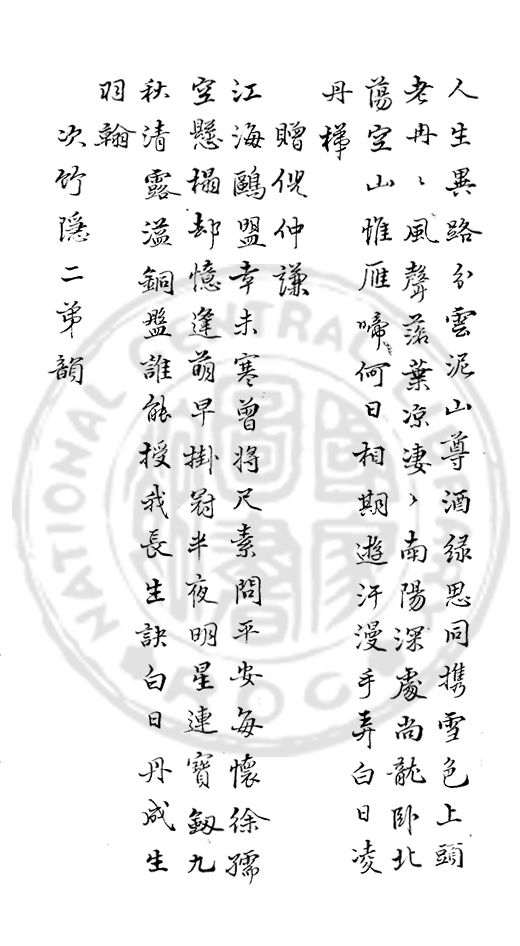 人生異路分雲泥山尊酒綠思同携雪色上頭
老冉〻風聲落葉凉淒〻南陽深處尚龍卧北
蕩空山惟雁啼何日相期遊汗漫手弄白日凌
丹梯
贈倪仲謙
江海鷗盟幸未寒曾將尺素問平安每懷徐孺
空懸榻却憶逢萌早掛冠半夜明星連寶劔九
秋清露溢銅盤誰能授我長生訣白日丹成生
羽翰
次竹隱二弟韻
NATIONAL CENTRAL LIBRARY
R.O.C.